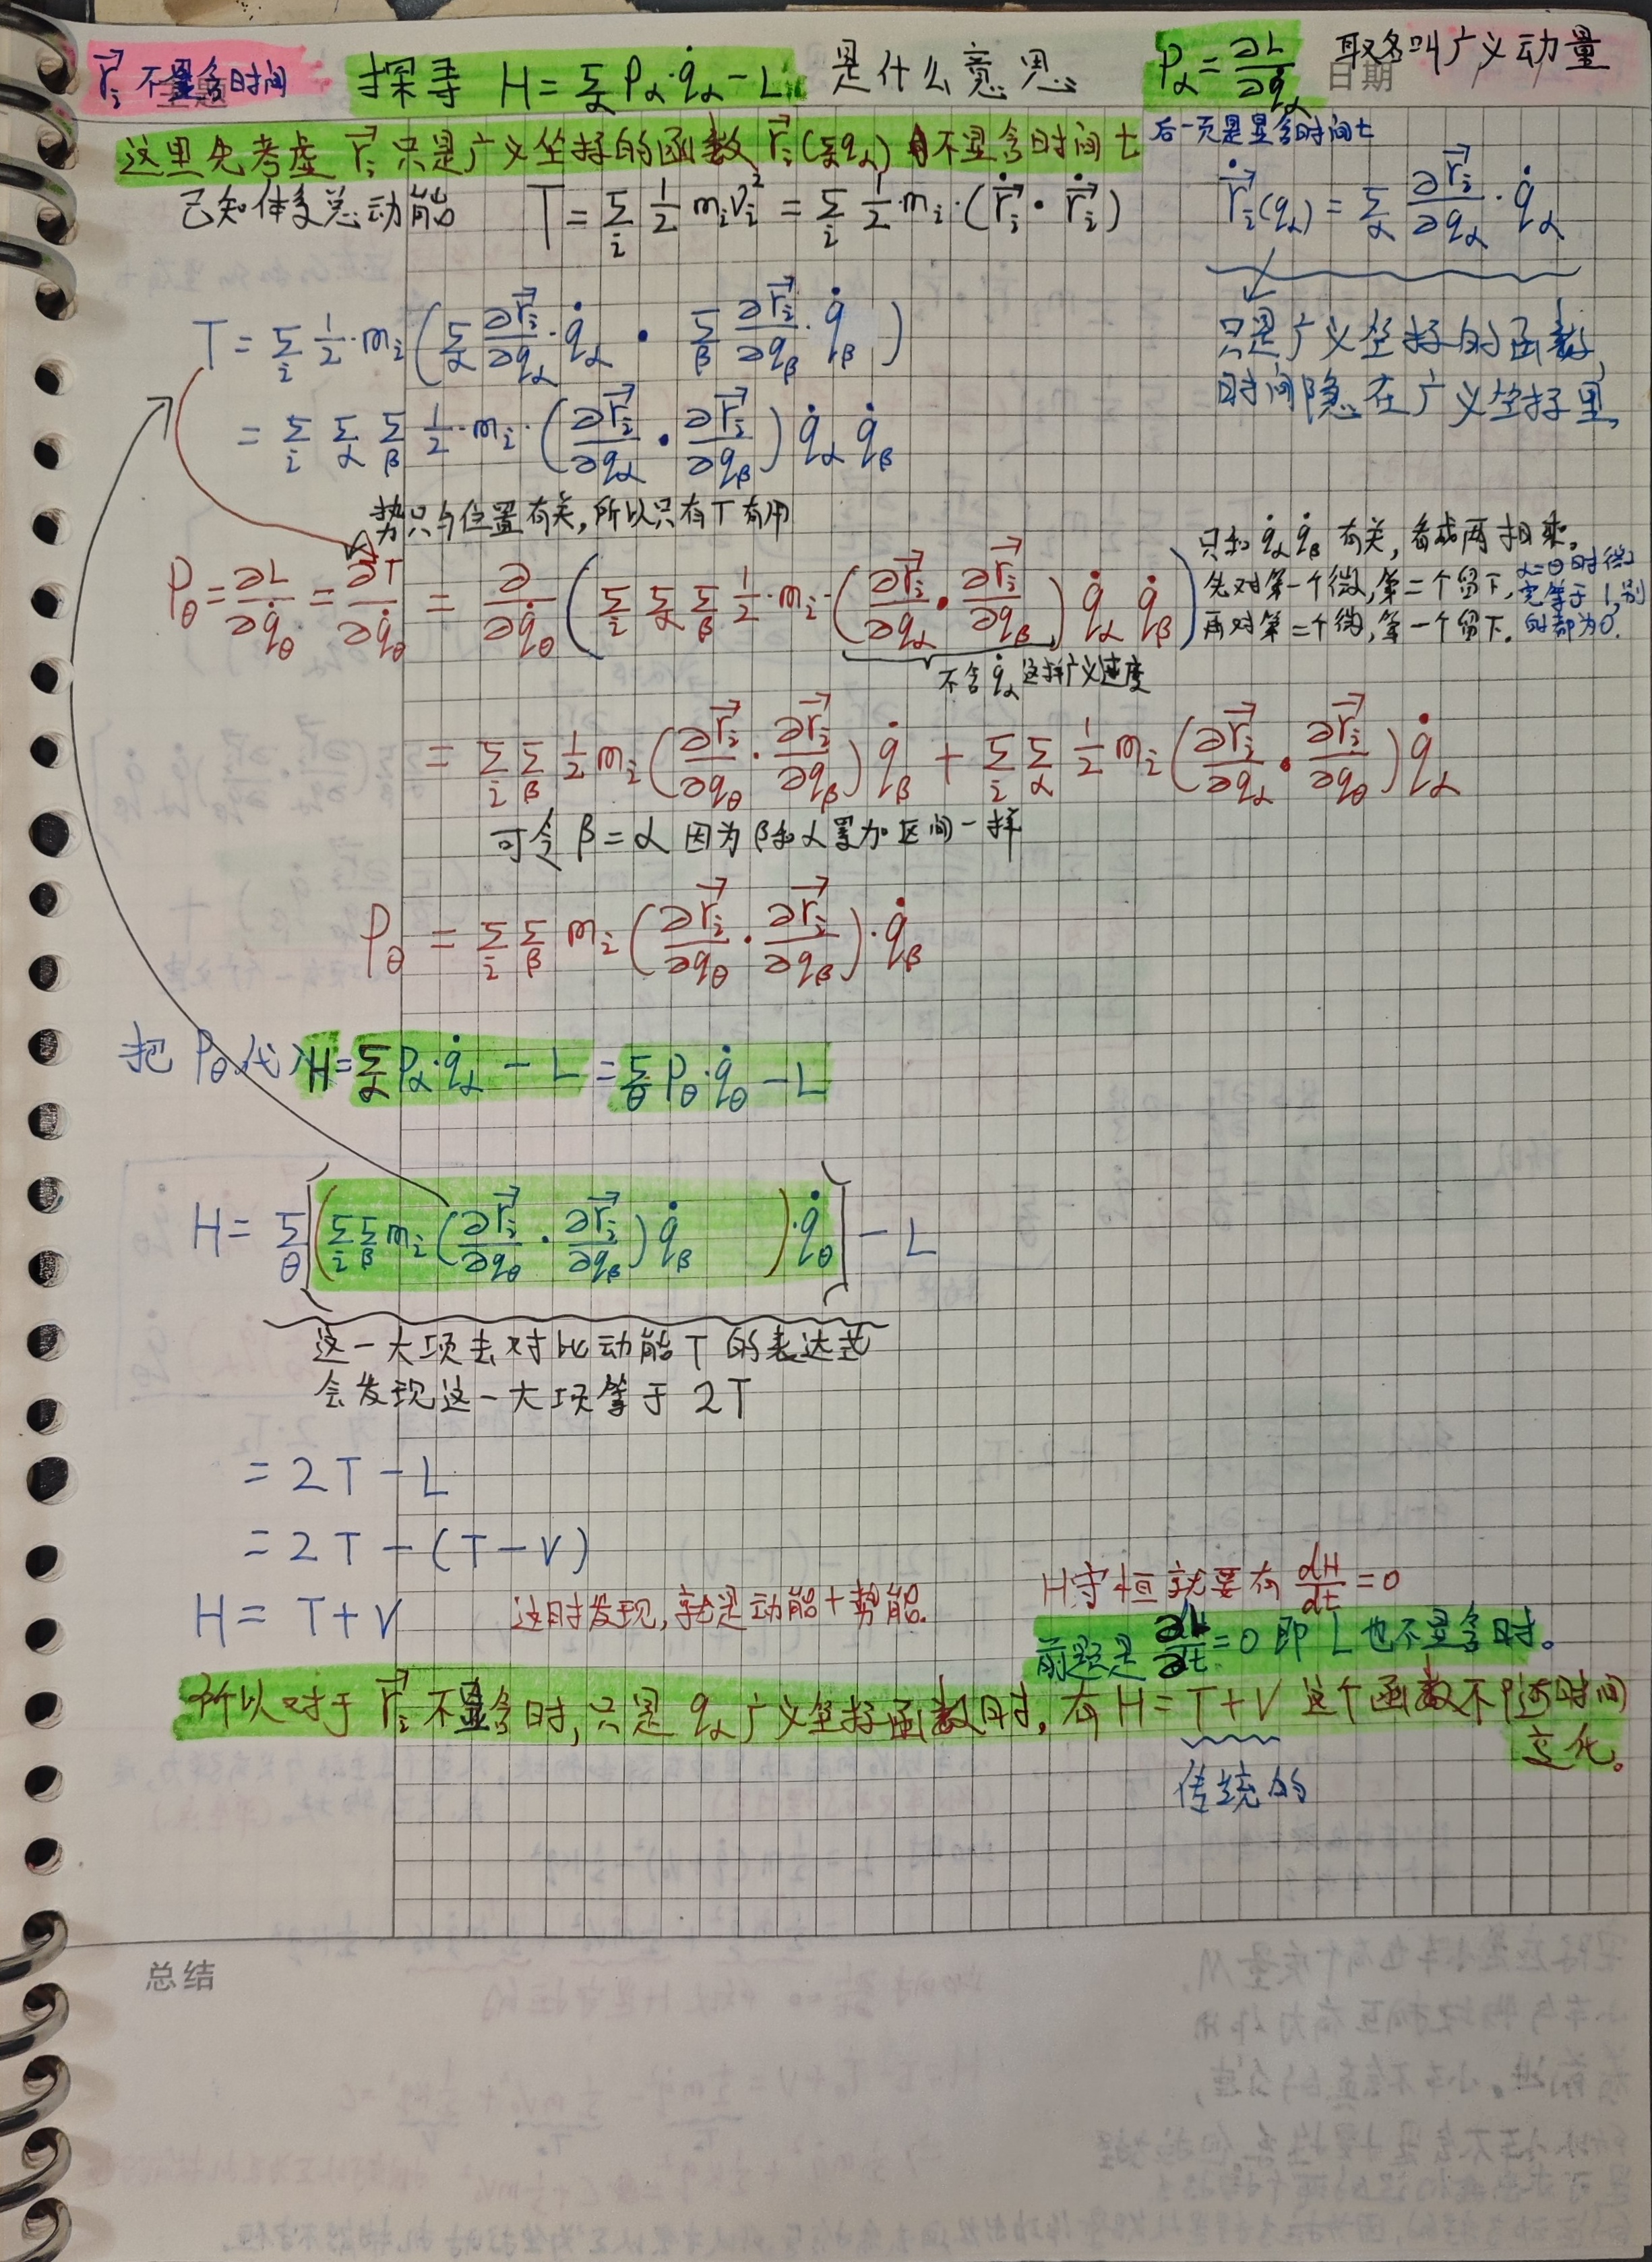 r⃗ᵢ 不显含时间 探寻 H = Σ_α P_α·q̇_α − L 是什么意思 P_α = ∂L/∂q̇_α 取名叫广义动量
日期 / /
这里先考虑 r⃗ᵢ 只是广义坐标的函数 r⃗ᵢ(q_α) 不显含时间 t 后一页是显含时间 t
已知体系总动能 T = Σ_i ½ mᵢvᵢ² = Σ_i ½·mᵢ·(r⃗̇ᵢ · r⃗̇ᵢ) r⃗̇ᵢ(q_α) = Σ_α ∂r⃗ᵢ/∂q_α · q̇_α
T = Σ_i ½·mᵢ(Σ_α ∂r⃗ᵢ/∂q_α · q̇_α · Σ_β ∂r⃗ᵢ/∂q_β · q̇_β)
只是广义坐标的函数,
时间隐在广义坐标里,
= Σ_i Σ_α Σ_β ½·mᵢ·(∂r⃗ᵢ/∂q_α · ∂r⃗ᵢ/∂q_β) q̇_α q̇_β
势只与位置有关,所以只有T有用
P_θ = ∂L/∂q̇_θ = ∂T/∂q̇_θ = ∂/∂q̇_θ (Σ_i Σ_α Σ_β ½·mᵢ·(∂r⃗ᵢ/∂q_α · ∂r⃗ᵢ/∂q_β) q̇_α q̇_β)
只和 q̇_α q̇_β 有关, 看成两相乘,
先对第一个微,第二个留下,
再对第二个微,第一个留下.
α=θ时微
完等于1,别
时都为0.
不含 q̇_α 这样广义速度
= Σ_i Σ_β ½ mᵢ(∂r⃗ᵢ/∂q_θ · ∂r⃗ᵢ/∂q_β) q̇_β + Σ_i Σ_α ½ mᵢ(∂r⃗ᵢ/∂q_α · ∂r⃗ᵢ/∂q_θ) q̇_α
可令 β=α 因为 β和α累加区间一样
P_θ = Σ_i Σ_β mᵢ(∂r⃗ᵢ/∂q_θ · ∂r⃗ᵢ/∂q_β)·q̇_β
把 P_θ 代入 H = Σ_α P_α·q̇_α − L = Σ_θ P_θ·q̇_θ − L
H = Σ_θ [(Σ_i Σ_β mᵢ(∂r⃗ᵢ/∂q_θ · ∂r⃗ᵢ/∂q_β) q̇_β )·q̇_θ] − L
这一大项去对比动能T的表达式
会发现这一大项等于 2T
= 2T − L
= 2T − (T − V)
H = T + V 这时发现,就是动能+势能.
H守恒就要有 dH/dt = 0
前题是 ∂L/∂t = 0 即 L 也不显含时。
所以对于 r⃗ᵢ 不显含时,只是 q_α 广义坐标函数时, 有 H = T + V 这个函数不随时间
变化。
传统的
总结